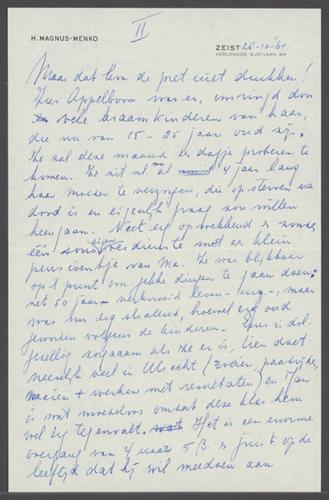 H. MAGNUS-MENKO
II
ZEIST 28-10-'64
VERLENGDE SLOTLAAN 94
Maar dat kon de pret niet drukken!
Zus Appelboom was er, omringd door
vele kraamkinderen van haar,
die nu van 15 - 25 jaar oud zijn.
Ze zal deze maand een dagje proberen te
komen. Ze zit nl. al 4 jaar lang
haar moeder te verzorgen, die op sterven na
dood is en eigenlijk graag zou willen
heengaan. Niet erg opwekkend en zonder
één eigen verdienste met een klein
pensioentje van Ma. Ze was blijkbaar
op 't punt om gekke dingen te gaan doen:
net 50 jaar - verknoeid leven - enz -, maar
was nu erg stralend, hoewel erg oud
geworden volgens de kinderen. Zus is dol-
gezellig zogzaam als ze er is, Lien doet
vreselijk veel in Utrecht (paardrijden,
naaien + werken met resultaten) en Jan
is wat moedeloos omdat deze klas hem
wel erg tegenvalt. Het is een enorme
overgang van 4 naar 5 β. en juist op de
leeftijd dat hij wil meedoen aan